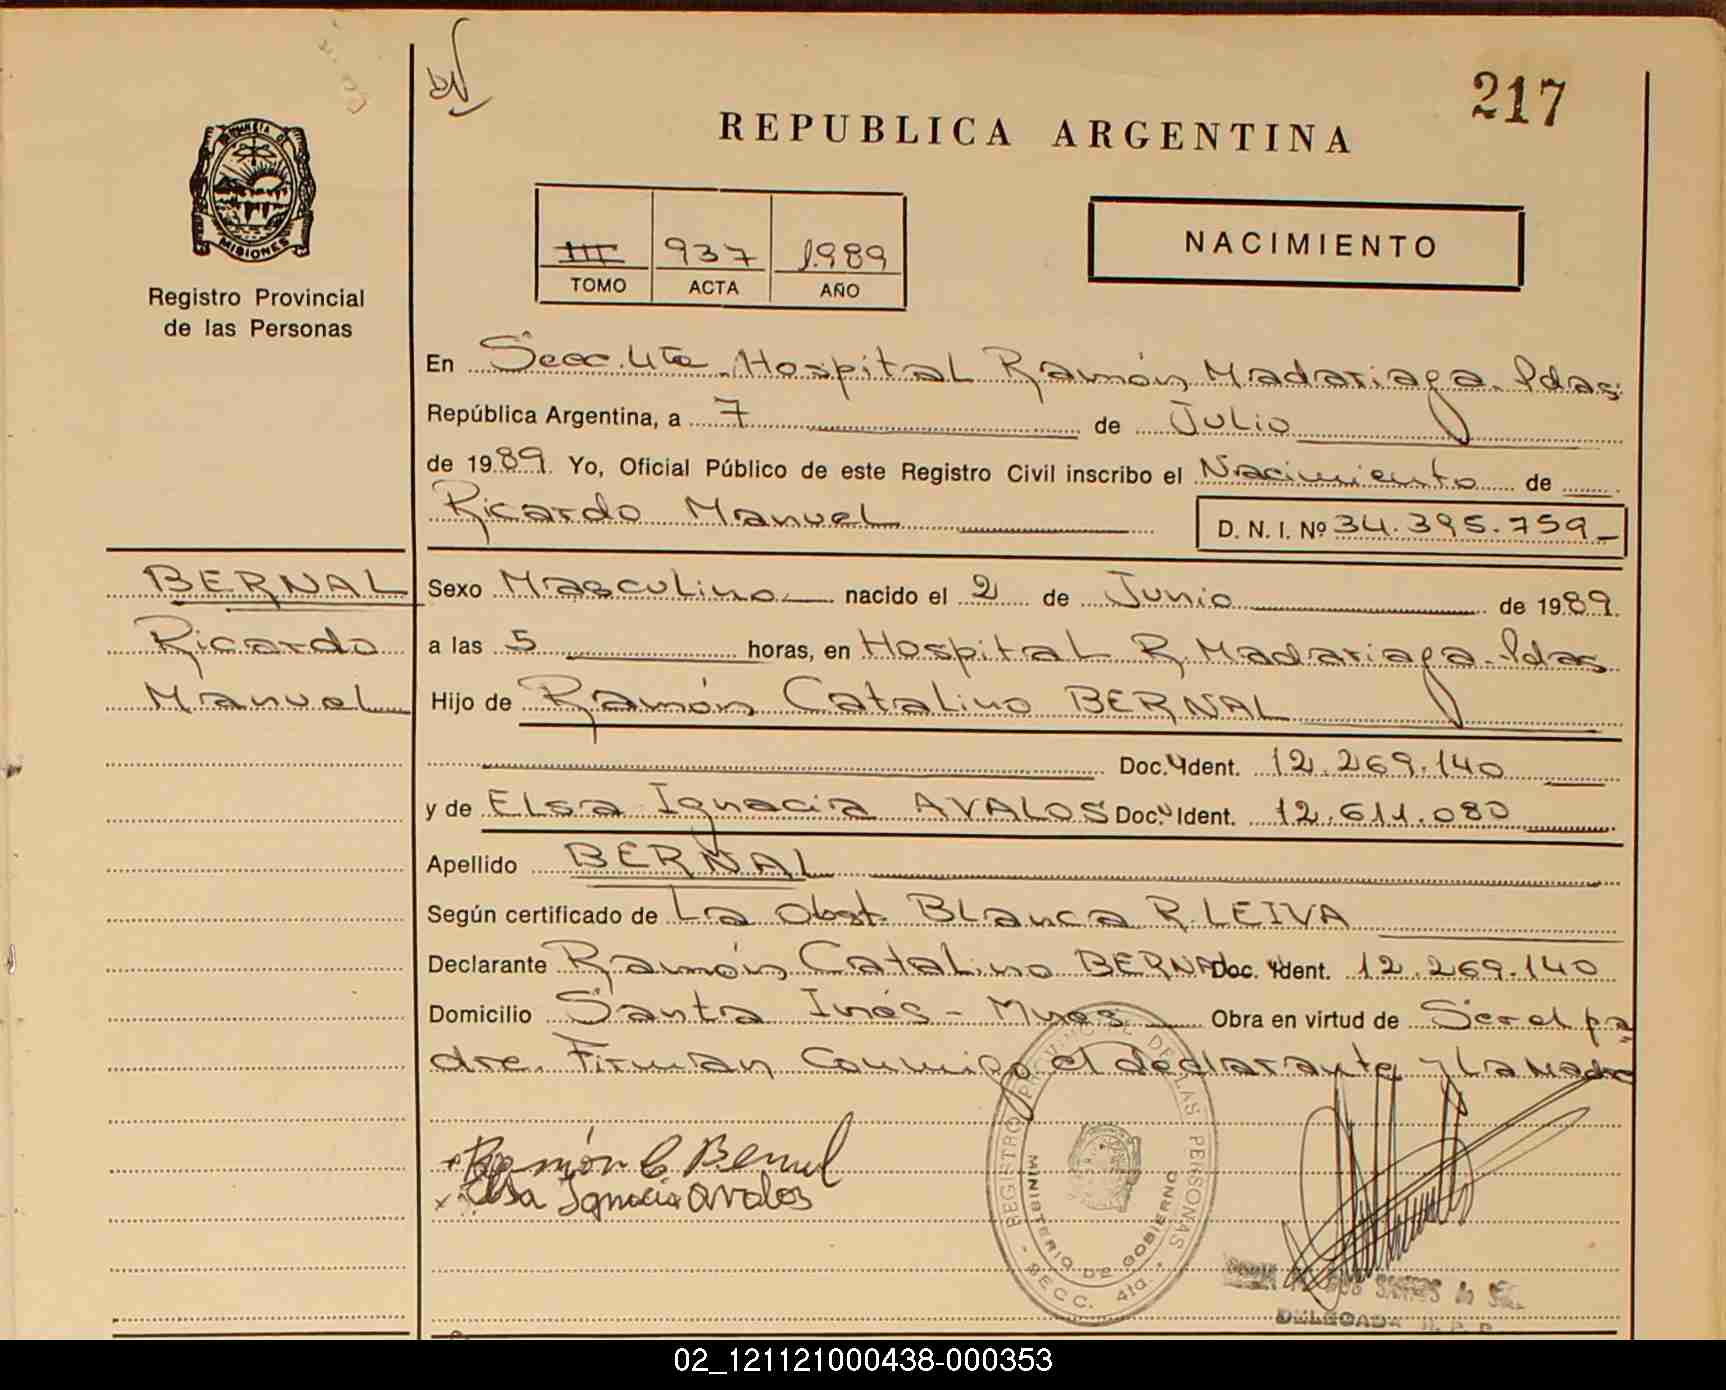 217
REPUBLICA ARGENTINA
PROVINCIA DE
MISIONES
Registro Provincial
de las Personas
III 937 1989
TOMO ACTA AÑO
NACIMIENTO
En Secc. 4ta. Hospital Ramón Madariaga. Pdas.
República Argentina, a 7 de Julio
de 1989. Yo, Oficial Público de este Registro Civil inscribo el Nacimiento de
Ricardo Manuel D. N. I. Nº 34.395.759_
BERNAL
Ricardo
Manuel
Sexo Masculino nacido el 2 de Junio de 1989.
a las 5 horas, en Hospital R. Madariaga. Pdas
Hijo de Ramón Catalino BERNAL
Doc. Ident. 12.269.140
y de Elsa Ignacia AVALOS Doc. Ident. 12.611.080
Apellido BERNAL
Según certificado de La Obst. Blanca R. LEIVA
Declarante Ramón Catalino BERNAL Doc. Ident. 12.269.140
Domicilio Santa Inés - Mnes Obra en virtud de Ser el pa
dre. Firman Conmigo el declarante y La Madre
Ramón C. Bernal
x Elsa Ignacia Avalos
REGISTRO PROVINCIAL DE LAS PERSONAS
MINISTERIO DE GOBIERNO
- SECC. 4ta. -
DOS SANTOS
DELEGADA R. P. P.
02_121121000438-000353